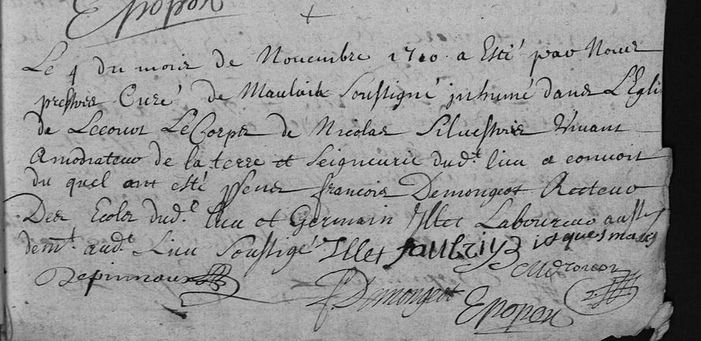 Epopon
Le 4 du mois de Novembre 1710 a Esté par Nous
prestre Curé de Maulain Soussigné inhumé dans L'Egli
de Lecourt Le Corps de Nicolas Silvestre Vivant
Amodiateur de la terre et Seigneurie dud.t lieu a convoit
du quel ont esté pñs francois Demongeot Recteur
Des Ecoles dud.t lieu et Germain Illet Laboureur aussi
dem.t aud.t Lieu Soussigé Illet
Demongeot
Epopon